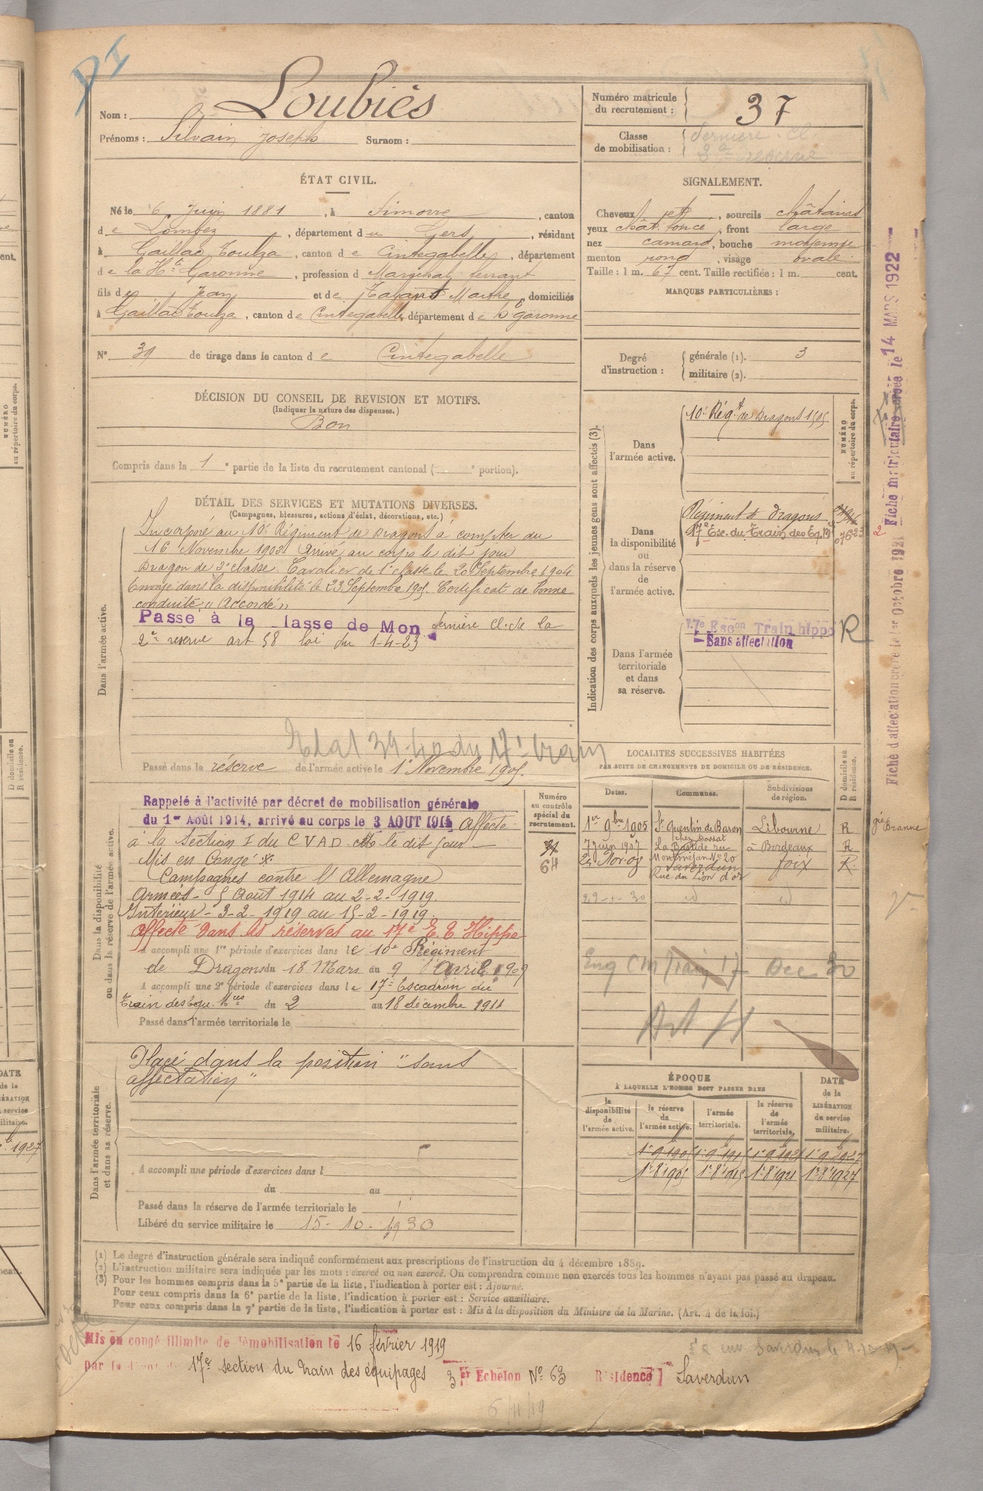 Nom : Loubiès
Prénoms : Silvain Joseph Surnom :
Numéro matricule du recrutement : 37
Classe de mobilisation : Dernière Cl.
2e réserve
ÉTAT CIVIL.
Né le 6 Juin 1881, à Simorre, canton
de Lombez, département du Gers, résidant
à Gaillac Toulza, canton de Cintegabelle, département
de la Hte Garonne, profession de Maréchal ferrant
fils de Jean et de Marthe, domiciliés
à Gaillac Toulza, canton de Cintegabelle, département de Hte Garonne
N° 39 de tirage dans le canton de Cintegabelle
SIGNALEMENT.
Cheveux et, sourcils châtains
yeux chât. foncé, front large
nez camard, bouche moyenne
menton rond, visage ovale
Taille : 1 m. 67 cent. Taille rectifiée : 1 m. cent.
MARQUES PARTICULIÈRES :
Degré d'instruction : générale (1). 3
militaire (2).
DÉCISION DU CONSEIL DE REVISION ET MOTIFS.
(Indiquer la nature des dispenses.)
Bon
Compris dans la 1e partie de la liste du recrutement cantonal ( e portion).
DÉTAIL DES SERVICES ET MUTATIONS DIVERSES.
(Campagnes, blessures, actions d'éclat, décorations, etc.)
Dans l'armée active.
Incorporé au 10e Régiment de Dragons à compter du
16 Novembre 1902. Arrivé au corps le dit jour
Dragon de 2e classe. Cavalier de 1e classe le 20 Septembre 1904
Envoyé dans la disponibilité le 23 Septembre 1905. Certificat de bonne
conduite "Accordé"
Passé à la lasse de Mon dernière cl. de la
2e réserve art 58 loi du 1-4-23
Passé dans la réserve de l'armée active le 1er Novembre 1905.
Indication des corps auxquels les jeunes gens sont affectés (3).
NUMÉRO au répertoire du corps.
Dans l'armée active.
10e Régt de Dragons 1505
Dans la disponibilité ou dans la réserve de l'armée active.
Régiment de Dragons
17e Esc. du Train des Eq.
Dans l'armée territoriale et dans sa réserve.
17e Escon Train hippo R
Sans affectation
Fiche d'affectation créée le 1er Octobre 1921 Fiche matriculaire versée le 14 MARS 1922
LOCALITES SUCCESSIVES HABITÉES
PAR SUITE DE CHANGEMENTS DE DOMICILE OU DE RÉSIDENCE.
Dates. Communes. Subdivisions de région. D domicile ou R résidence.
1er 9bre 1905 St Quentin de Baron Libourne R
7 Juin 1907 La Bastide rue à Bordeaux R
Saverdun Foix R
Rue du Lion d'or
Dans la disponibilité ou dans la réserve de l'armée active.
Numéro au contrôle spécial du recrutement.
64
Rappelé à l'activité par décret de mobilisation générale
du 1er Août 1914, arrivé au corps le 3 AOUT 1914 Affecté
à la section I du CVAD le dit jour
Mis en Congé
Campagnes contre l'Allemagne
Armées - 5 Août 1914 au 2-2-1919.
Intérieur - 3-2-1919 au 15-2-1919
Affecté dans les réserves au 17e E. E. Hippo
A accompli une 1re période d'exercices dans le 10e Régiment
de Dragons du 18 Mars au 9 Avril 1909
A accompli une 2e période d'exercices dans le 17e Escadron du
Train des Equ. du 2 au 18 décembre 1911
Passé dans l'armée territoriale le
Dans l'armée territoriale et dans sa réserve.
Placé dans la position "sans
affectation"
A accompli une période d'exercices dans l
du au
Passé dans la réserve de l'armée territoriale le
Libéré du service militaire le 15-10-1930
ÉPOQUE
À LAQUELLE L'HOMME DOIT PASSER DANS
DATE de la LIBÉRATION du service militaire.
la disponibilité de l'armée active. la réserve de l'armée active. l'armée territoriale. la réserve de l'armée territoriale.
(1) Le degré d'instruction générale sera indiqué conformément aux prescriptions de l'instruction du 4 décembre 1889.
(2) L'instruction militaire sera indiquée par les mots : exercé ou non exercé. On comprendra comme non exercés tous les hommes n'ayant pas passé au drapeau.
(3) Pour les hommes compris dans la 5e partie de la liste, l'indication à porter est : Ajourné.
Pour ceux compris dans la 6e partie de la liste, l'indication à porter est : Service auxiliaire.
Pour ceux compris dans la 7e partie de la liste, l'indication à porter est : Mis à la disposition du Ministre de la Marine. (Art. 4 de la loi.)
Mis en congé illimité de démobilisation le 16 février 1919
17e section du train des équipages 3e Echelon No 63 Résidence Saverdun